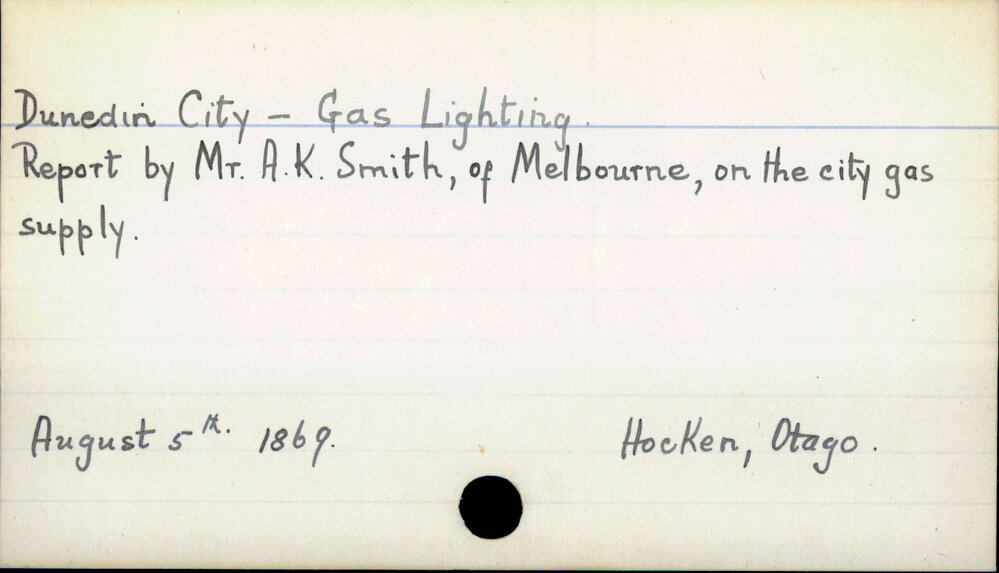 Dunedin City – Gas Lighting.
Report by Mr. A.K. Smith, of Melbourne, on the city gas
supply.
August 5th. 1869.
Hocken, Otago.